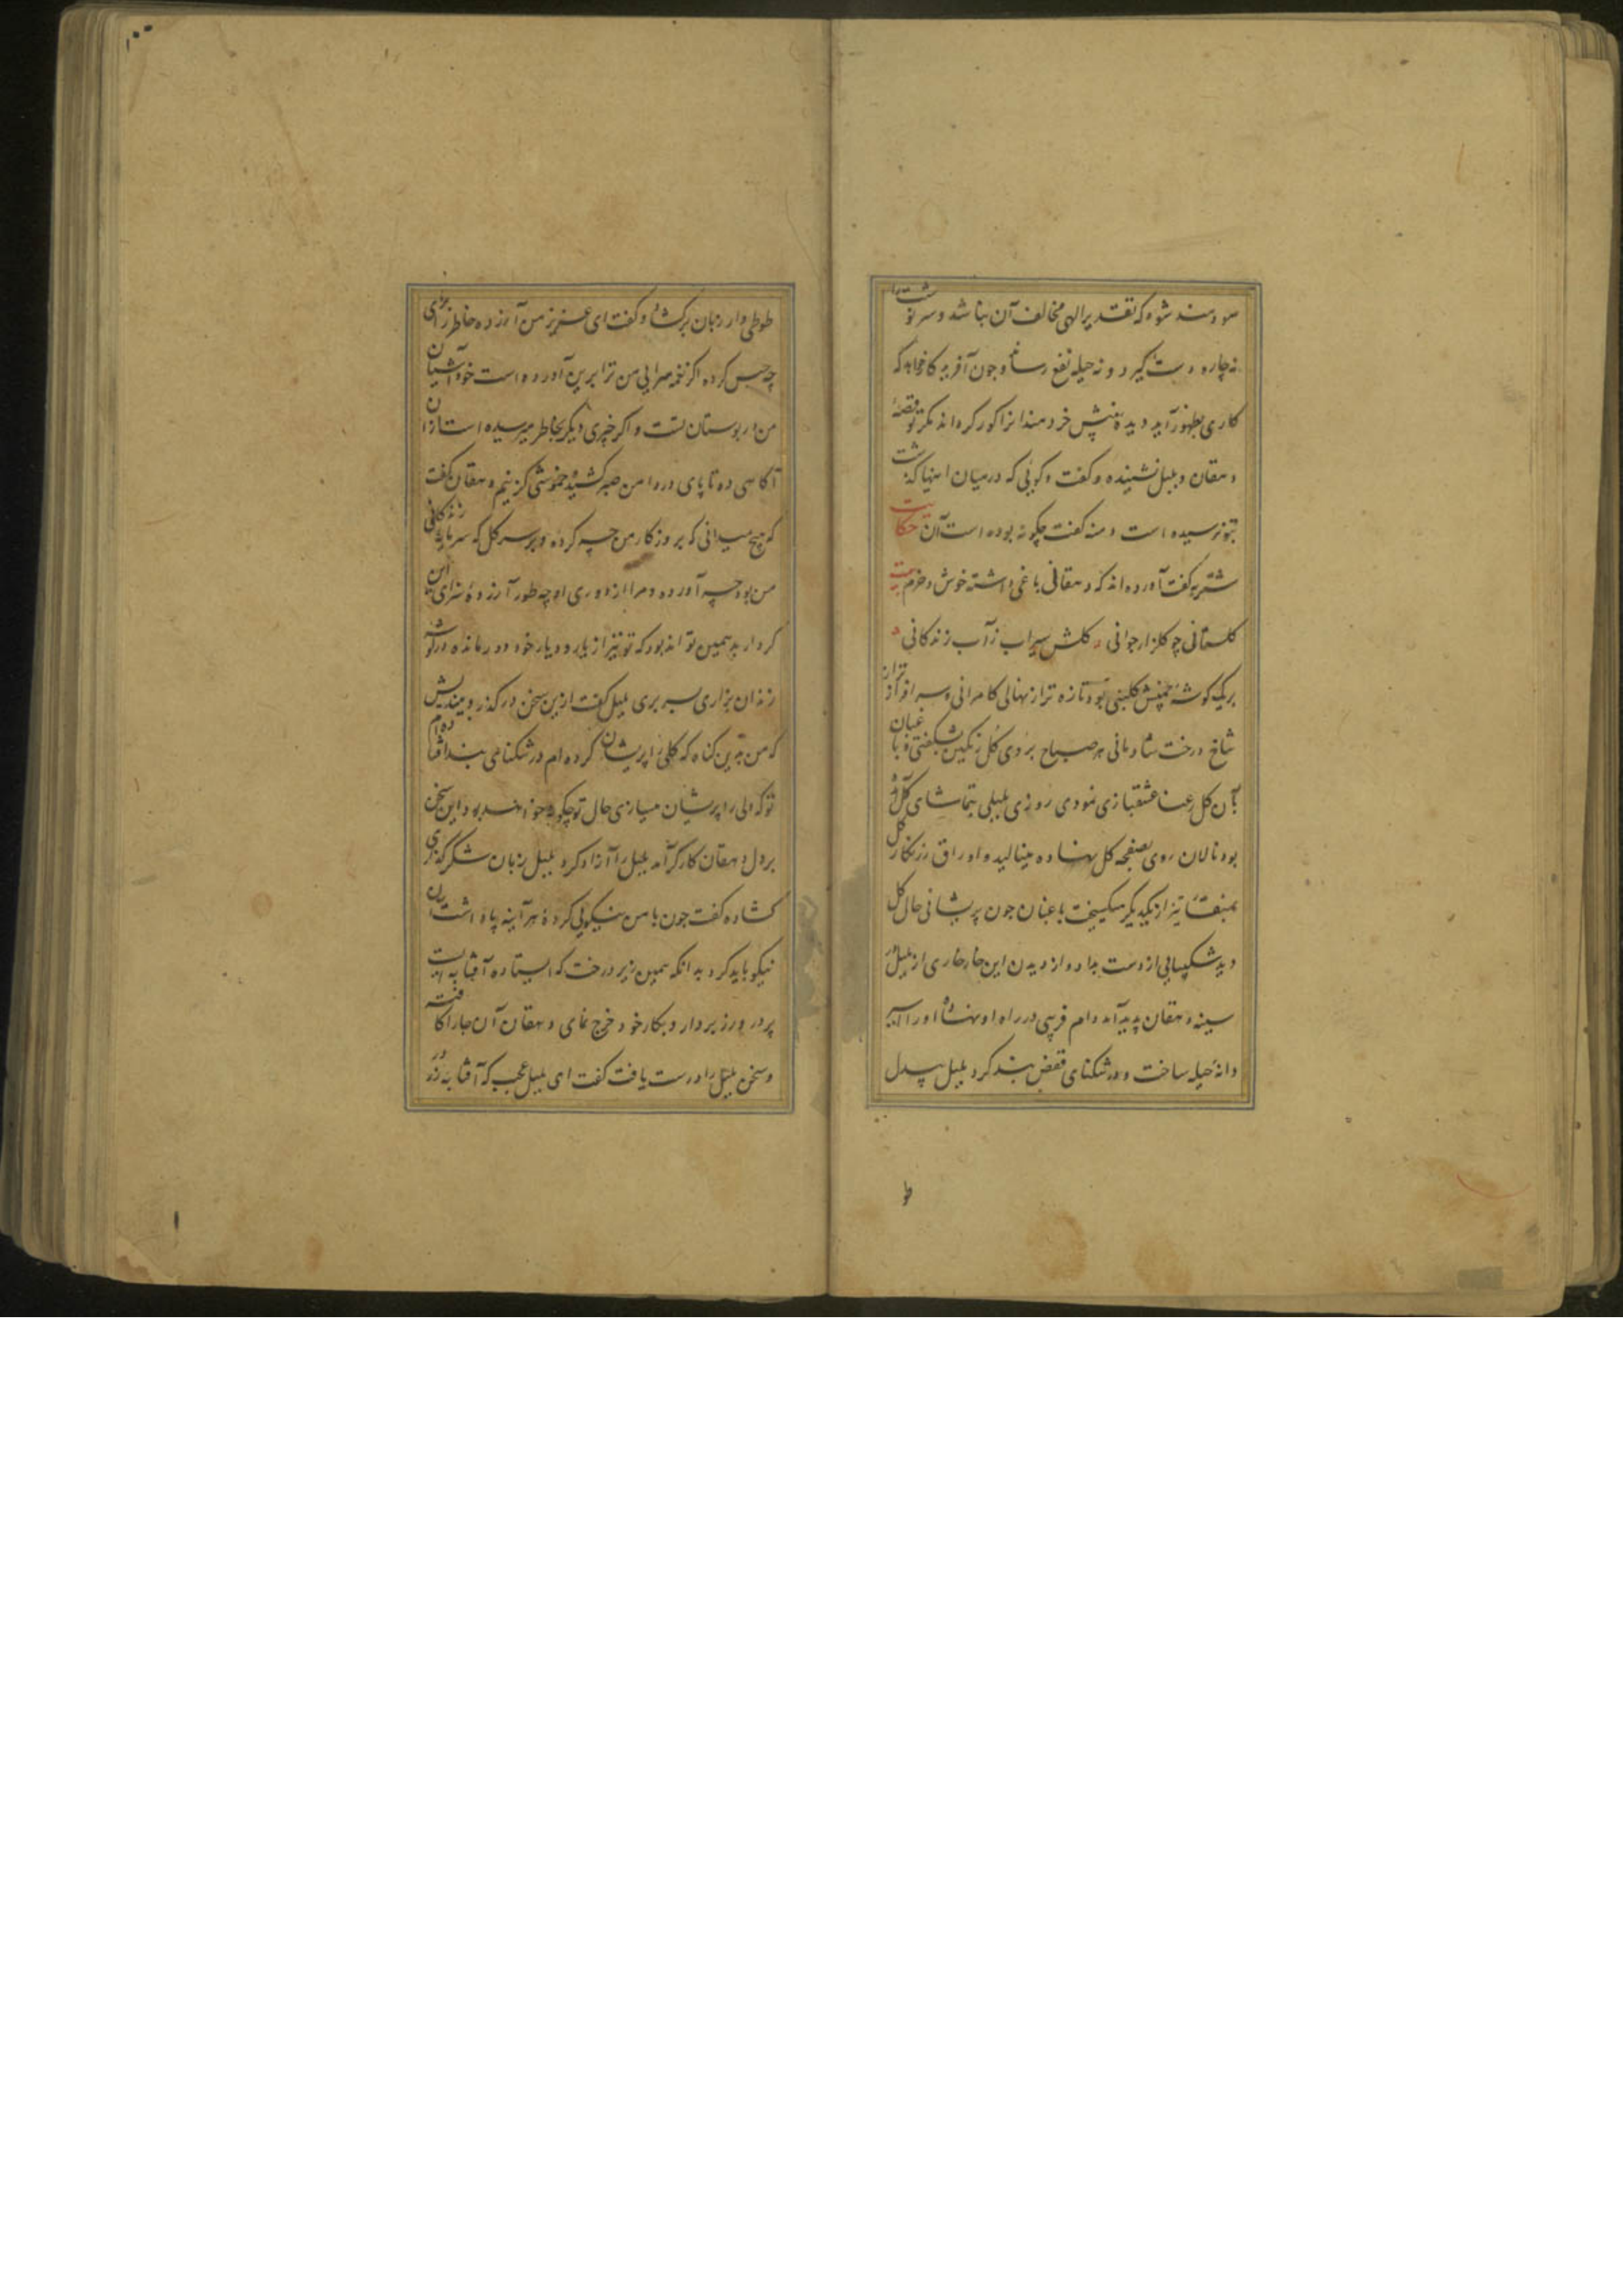 سودمند شود که تقدیر الهی مخالف آن نباشد و سرنوشت را
نه چاره دست گیرد و نه حیله نفع رساند و جون آفریدکار خواهد که
کاری بظهور آید دیده بینش خردمندانرا کور کرداند مکر تو قصهٔ
دهقان و بلبل نشنیده و کفت و کویی که درمیان اینها کذشت
بتو نرسیده است دمنه کفت چکونه بوده است آن حکایت
شتربه کفت آورده اند که دهقانی باغی داشته خوش و خرم بیت
کلستانی چو کلزار جوانی کلش سیراب ز آب زندکانی
بریک کوشهٔ چمنش کلبنی بود تازه تر از نهال کامرانی و سرافرازتر از
شاخ درخت شادمانی هر صباح بروی کل رنکین شکفتی و باغبان
با آن کل رعنا عشقبازی نمودی روزی بلبلی بتماشای کل آمد
بود نالان روی بصفحه کل نهاده مینالید و اوراق زرنکار کل
بمنقار تیز از یکدیکر میکسیخت باغبان جون پریشانی حال کل
دید شکیبایی از دست بداد و از دیدن این حال خار خاری از بلبل در
سینه دهقان پدید آمد دام فریبی در راه او نهاد و او را اسیر
دانهٔ حیله ساخت و در تنکنای قفص بند کرد بلبل بیدل
طو
۱۰۰
طوطی وار زبان برکشاد و کفت ای عزیز من آزرده خاطر را برای
چه حبس کرده اکر نغمه سرایی من ترا برین آورده است خود آشیان
من در بوستان تست و اکر خبری دیکر بخاطر میرسیده است از آن
آکاهی ده تا پای در دامن صبر کشیده خموشی کزینم دهقان کفت
که هیچ میدانی که بروزکار من چه کرده و بر سر کل که سرمایه زندکانی
من بود چه آورده و مرا از دوری او چه طور آزرده سزای این
کردار بد همین تواند بود که تو نیز از یار و دیار خود دور مانده در کوشه
زندان بزاری بسر بری بلبل کفت ازین سخن درکذر و بیندیش
که من بدین کناه که کلی را پریشان کرده ام در تنکنای بند افتاده ام
تو که دلی را پریشان میسازی حال تو چکونه خواهد بود این سخن
بر دل دهقان کارکر آمد بلبل را آزاد کرد بلبل زبان شکرکذاری
کشاده کفت جون با من نیکویی کرده هرآینه پاداشت آن
نیکو باید کرد بدانکه همین زیر درخت که ایستاده آفتابه ایست
پر از زر بردار و بکار خود خرج نمای دهقان آن جا را کافته
و سخن بلبل را درست یافت کفت ای بلبل عجب که آفتابه زر در